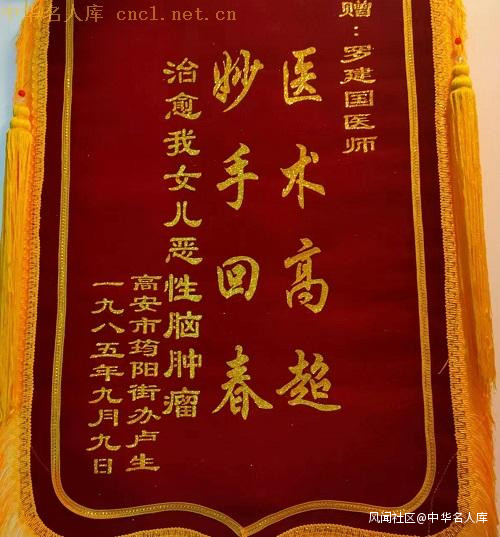 中华名人库 cnc1.net.cn
赠：罗建国医师
医术高超
妙手回春
治愈我女儿恶性脑肿瘤
高安市筠阳街办卢生
一九八五年九月九日
风闻社区@中华名人库